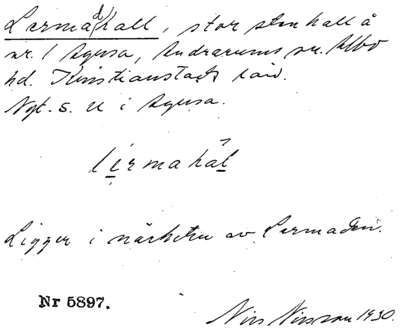 Lermadahall, stor stenhall å
nr. 1 Agusa, Andrarums sn. Albo
hd. Kristianstads län.
Ngt. s. ut i Agusa.
lermahal
Ligger i närheten av Lermaden.
Nr 5897.
Nils Nilsson 1930.